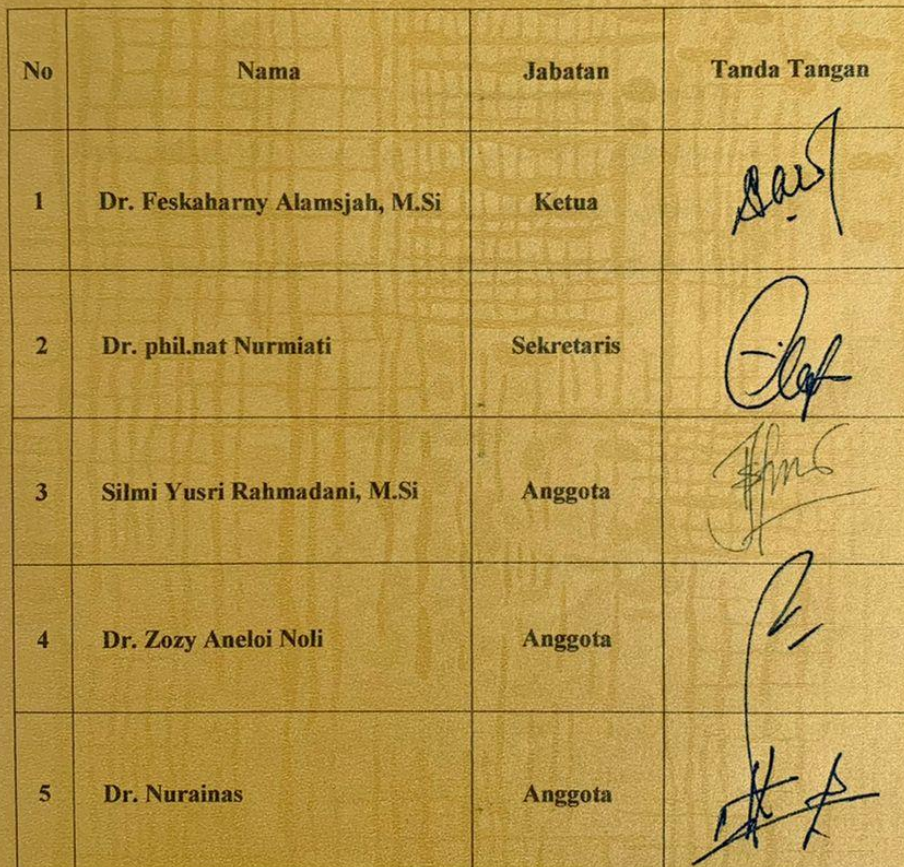 No Nama Jabatan Tanda Tangan
1 Dr. Feskaharny Alamsjah, M.Si Ketua
2 Dr. phil.nat Nurmiati Sekretaris
3 Silmi Yusri Rahmadani, M.Si Anggota
4 Dr. Zozy Aneloi Noli Anggota
5 Dr. Nurainas Anggota